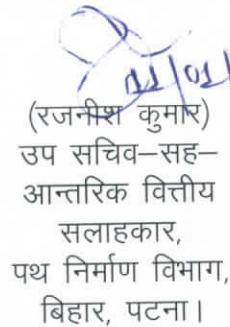 11/01/
(रजनीश कुमार)
उप सचिव–सह–
आन्तरिक वित्तीय
सलाहकार,
पथ निर्माण विभाग,
बिहार, पटना।